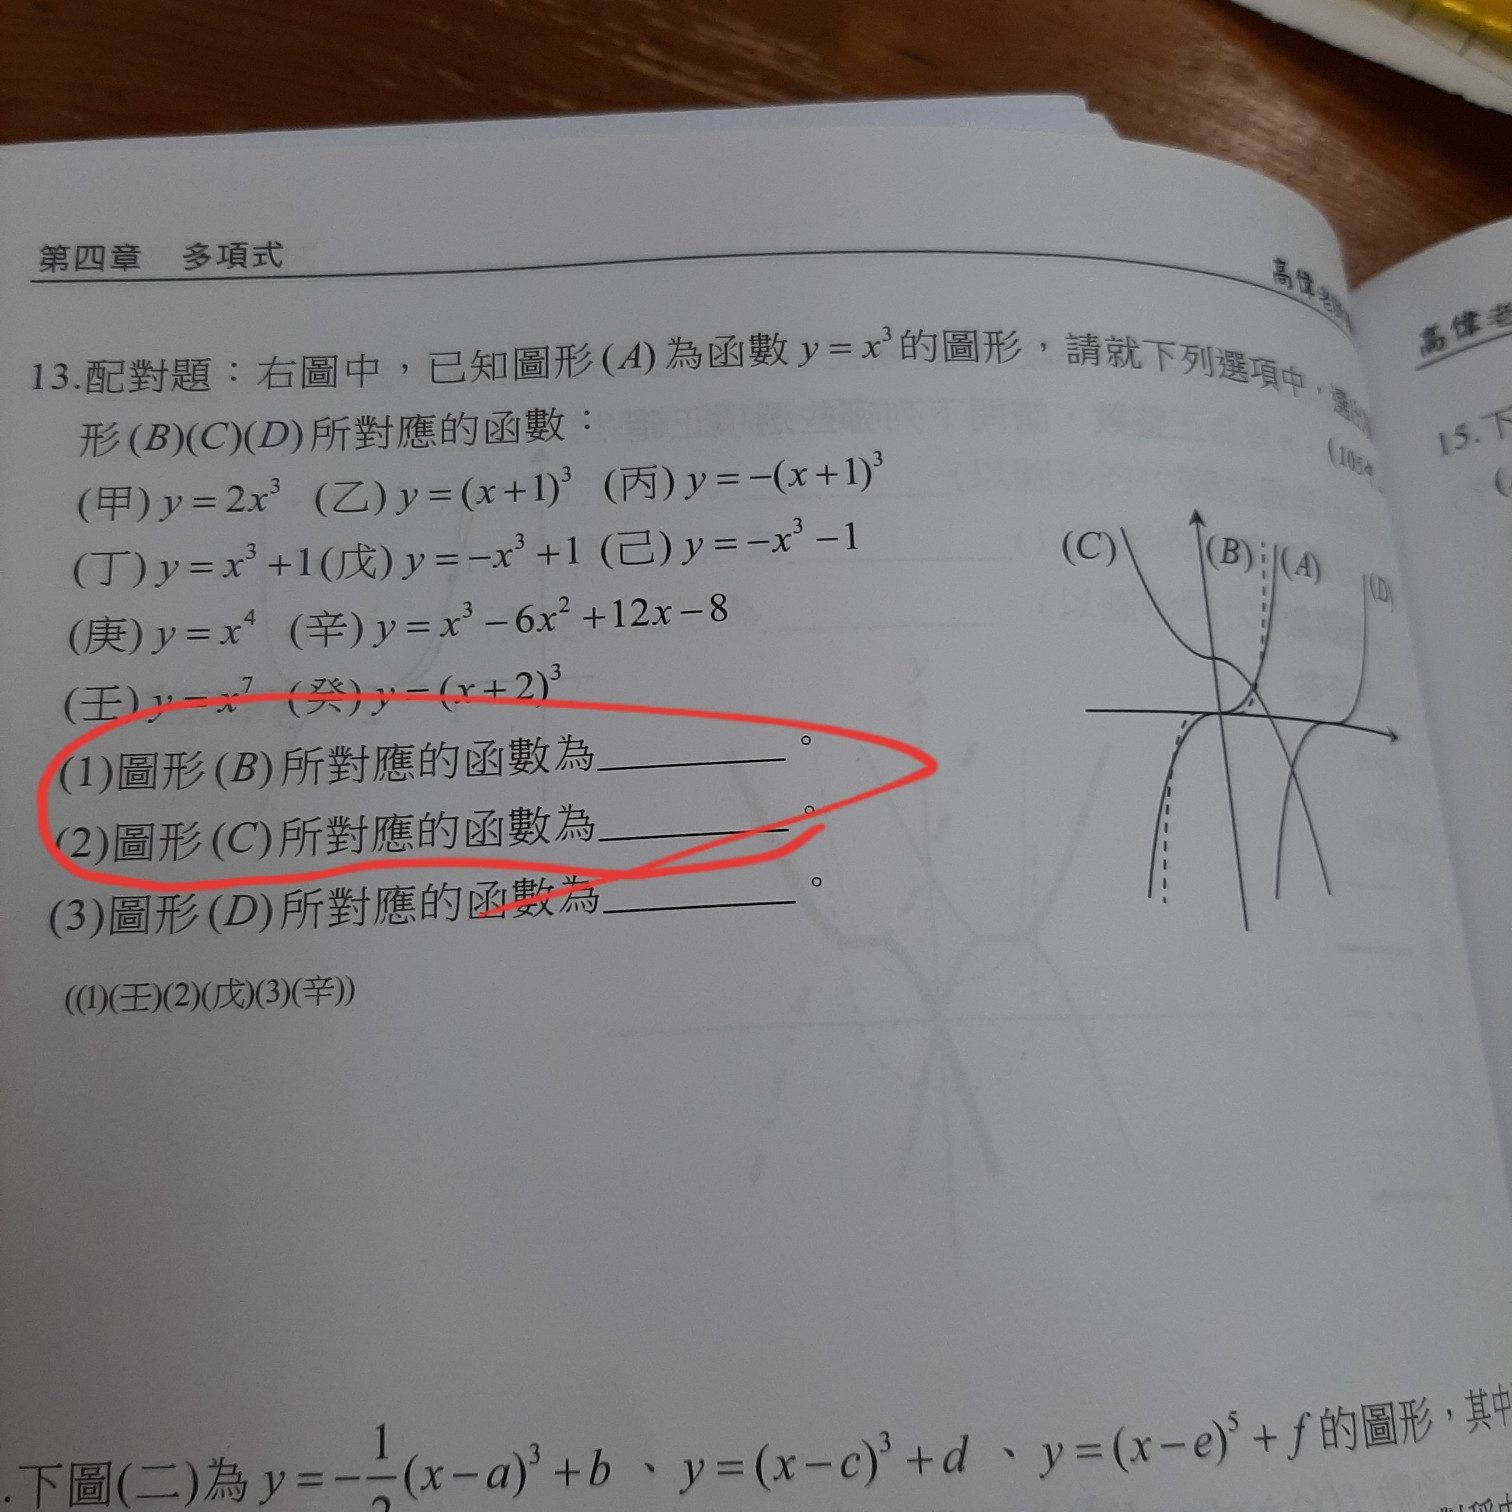 第四章 多項式
高偉老
13.配對題：右圖中，已知圖形(A)為函數 y = x³的圖形，請就下列選項中，
形(B)(C)(D)所對應的函數：
(105
(甲) y = 2x³ (乙) y = (x+1)³ (丙) y = −(x+1)³
(丁) y = x³ +1(戊) y = −x³ +1 (己) y = −x³ −1
(庚) y = x⁴ (辛) y = x³ − 6x² +12x − 8
(壬) y = x⁷ (癸) y = (x+2)³
(C) (B) (A) (D)
(1)圖形(B)所對應的函數為________。
(2)圖形(C)所對應的函數為________。
(3)圖形(D)所對應的函數為________。
((1)(壬)(2)(戊)(3)(辛))
.下圖(二)為 y = −1/2(x−a)³ + b、y = (x−c)³ + d、y = (x−e)⁵ + f 的圖形，其中
高偉老
15.下